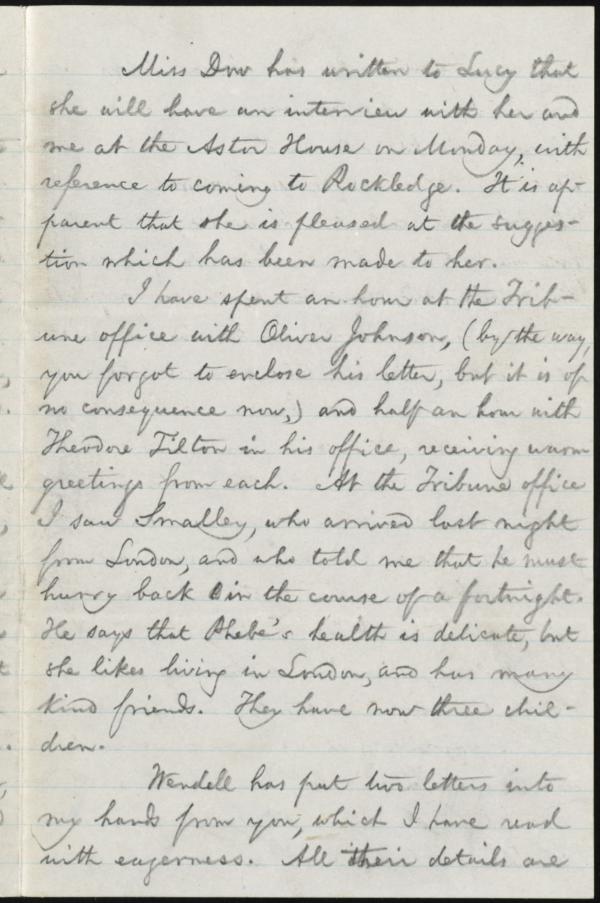 Miss Dow has written to Lucy that
she will have an interview with her and
me at the Astor House on Monday, with
reference to coming to Rockledge. It is ap-
parent that she is pleased at the sugges-
tion which has been made to her.
I have spent an hour at the Trib-
une office with Oliver Johnson, (by the way,
you forgot to enclose his letter, but it is of
no consequence now,) and half an hour with
Theodore Tilton in his office, receiving warm
greetings from each. At the Tribune office
I saw Smalley, who arrived last night
from London, and who told me that he must
hurry back in the course of a fortnight.
He says that Phebe's health is delicate, but
she likes living in London, and has many
kind friends. They have now three chil-
dren.
Wendell has put two letters into
my hands from you, which I have read
with eagerness. All their details are